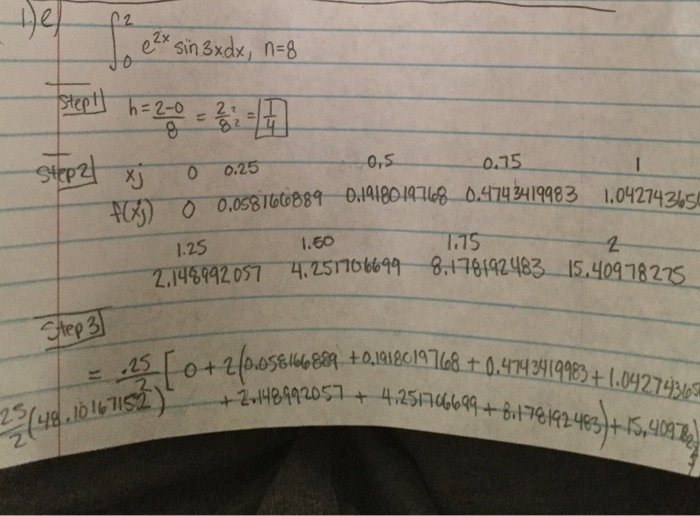 1.) e) ∫₀² e^{2x} sin 3x dx, n=8
Step 1 h = 2-0/8 = 2/8 = 1/4
Step 2 xj 0 0.25 0.5 0.75 1
f(xj) 0 0.058166889 0.1918019768 0.4743419983 1.04274365
1.25 1.50 1.75 2
2.148992057 4.251706699 8.178192483 15.40978275
Step 3
= .25/2 [0 + 2(0.058166889 + 0.1918019768 + 0.4743419983 + 1.04274365
+ 2.148992057 + 4.251706699 + 8.178192483) + 15.40978
25/2 (48.10167152)